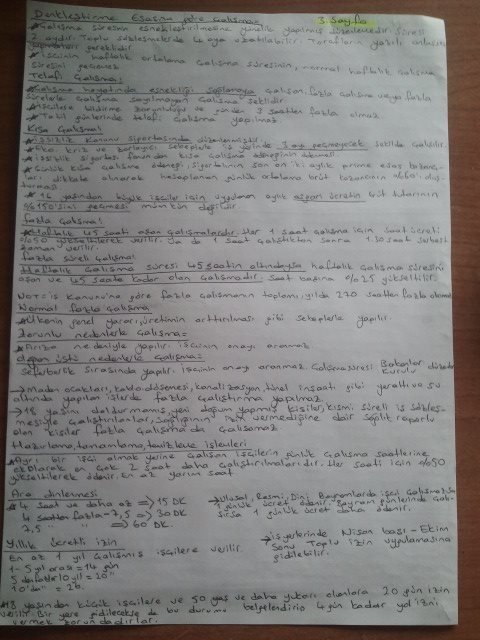 Denkleştirme Esasına göre Çalışma=
3. Sayfa
*Çalışma süresinin esnekleştirilmesine yönelik yapılmış düzenlemedir. Süresi
2 aydır. Toplu sözleşmelerde 4 aya uzatılabilir. Tarafların yazılı anlaşma
yapmaları gereklidir.
*İşçinin haftalık ortalama çalışma süresinin, normal haftalık çalışma
süresini geçemez
Telafi Çalışma!
*Çalışma hayatında esnekliği sağlamaya çalışan, fazla çalışma veya fazla
sürelerle çalışma sayılmayan çalışma şeklidir
*İşçilere bildirme zorunluluğu ve günden 3 saatten fazla olmaz
*Tatil günlerinde telafi çalışma yapılmaz
Kısa Çalışma!
*İşsizlik Kanunu sigortasında düzenlenmiştir.
*Eko. kriz ve zorlayıcı sebeplerle iş yerinde 3 ayı geçmeyecek şekilde çalışılır.
*İşsizlik sigortası fonundan kısa çalışma ödeneğinin ödenmesi
*Günlük kısa çalışma ödeneği, sigortalının son on iki aylık prime esas kazanç
ları dikkate alınarak hesaplanan günlük ortalama brüt kazancının %60'ı oluş
turması
*16 yaşından büyük işçiler için uygulanan aylık asgari ücretin brüt tutarının
%150'sini geçmesi mümkün değildir
Fazla Çalışma!
*Haftalık 45 saati aşan çalışmalardır. Her 1 saat çalışma için saat ücreti
%50 yükseltilerek verilir. Ya da 1 saat çalıştıktan sonra 1.30 saat serbest
zaman verilir.
Fazla süreli çalışma!
Haftalık Çalışma süresi 45 saatin altındaysa haftalık çalışma süresini
aşan ve 45 saate kadar olan çalışmadır. Saat başına %25 yükseltilir.
NOT: İş Kanunu'na göre fazla çalışmanın toplamı, yılda 270 saatten fazla olamaz
Normal fazla çalışma
*Ülkenin genel yararı, üretimin arttırılması gibi sebeplerle yapılır.
Zorunlu nedenlerle Çalışma=
*Arıza nedeniyle yapılır. İşçinin onayı aranmaz.
Olağan üstü nedenlerle Çalışma=
Seferberlik sırasında yapılır. İşçinin onayı aranmaz. Çalışma süresi Bakanlar
Kurulu
→Maden ocakları, kablo döşemesi, kanalizasyon, tünel inşaatı gibi yeraltı ve su
altında yapılan işlerde fazla çalıştırma yapılmaz
→18 yaşını doldurmamış, yeni doğum yapmış kişiler, kısmi süreli iş sözleş-
mesiyle çalıştırılanlar, sağlığının izin vermediğine dair sağlık raporlu
olan kişiler fazla çalışmada çalışamaz
Hazırlama, tamamlama, temizleme işlevleri
*Ayrı bir işçi almak yerine çalışan işçilerin günlük çalışma saatlerine
ek olarak en çok 2 saat daha çalıştırılmalarıdır. Her saati için %50
yükseltilerek ödenir. En az yarım saat
Ara dinlenmesi
* 4 saat ve daha az => 15 DK
4 saatten fazla - 7,5 => 30 DK
7,5 " => 60 DK.
→Ulusal, Resmi, Dini Bayramlarda işçi çalışmazsa
1 günlük ücret ödenir. Bayram günlerinde çalı-
şırsa 1 günlük ücret daha ödenir.
Yıllık ücretli izin
En az 1 yıl çalışmış işçilere verilir
1 - 5 yıl arası = 14 gün
5 den fazla 10 yıl = 20 "
10'dan " = 26.
→işyerlerinde Nisan başı - Ekim
Sonu Toplu izin uygulamasına
gidilebilir.
*18 yaşından küçük işçilere ve 50 yaş ve daha yukarı olanlara 20 gün izin
verilir. Bir yere gidilecekse de bu durumu belgelendirip 4 gün kadar yol izni
vermek zorundadırlar.